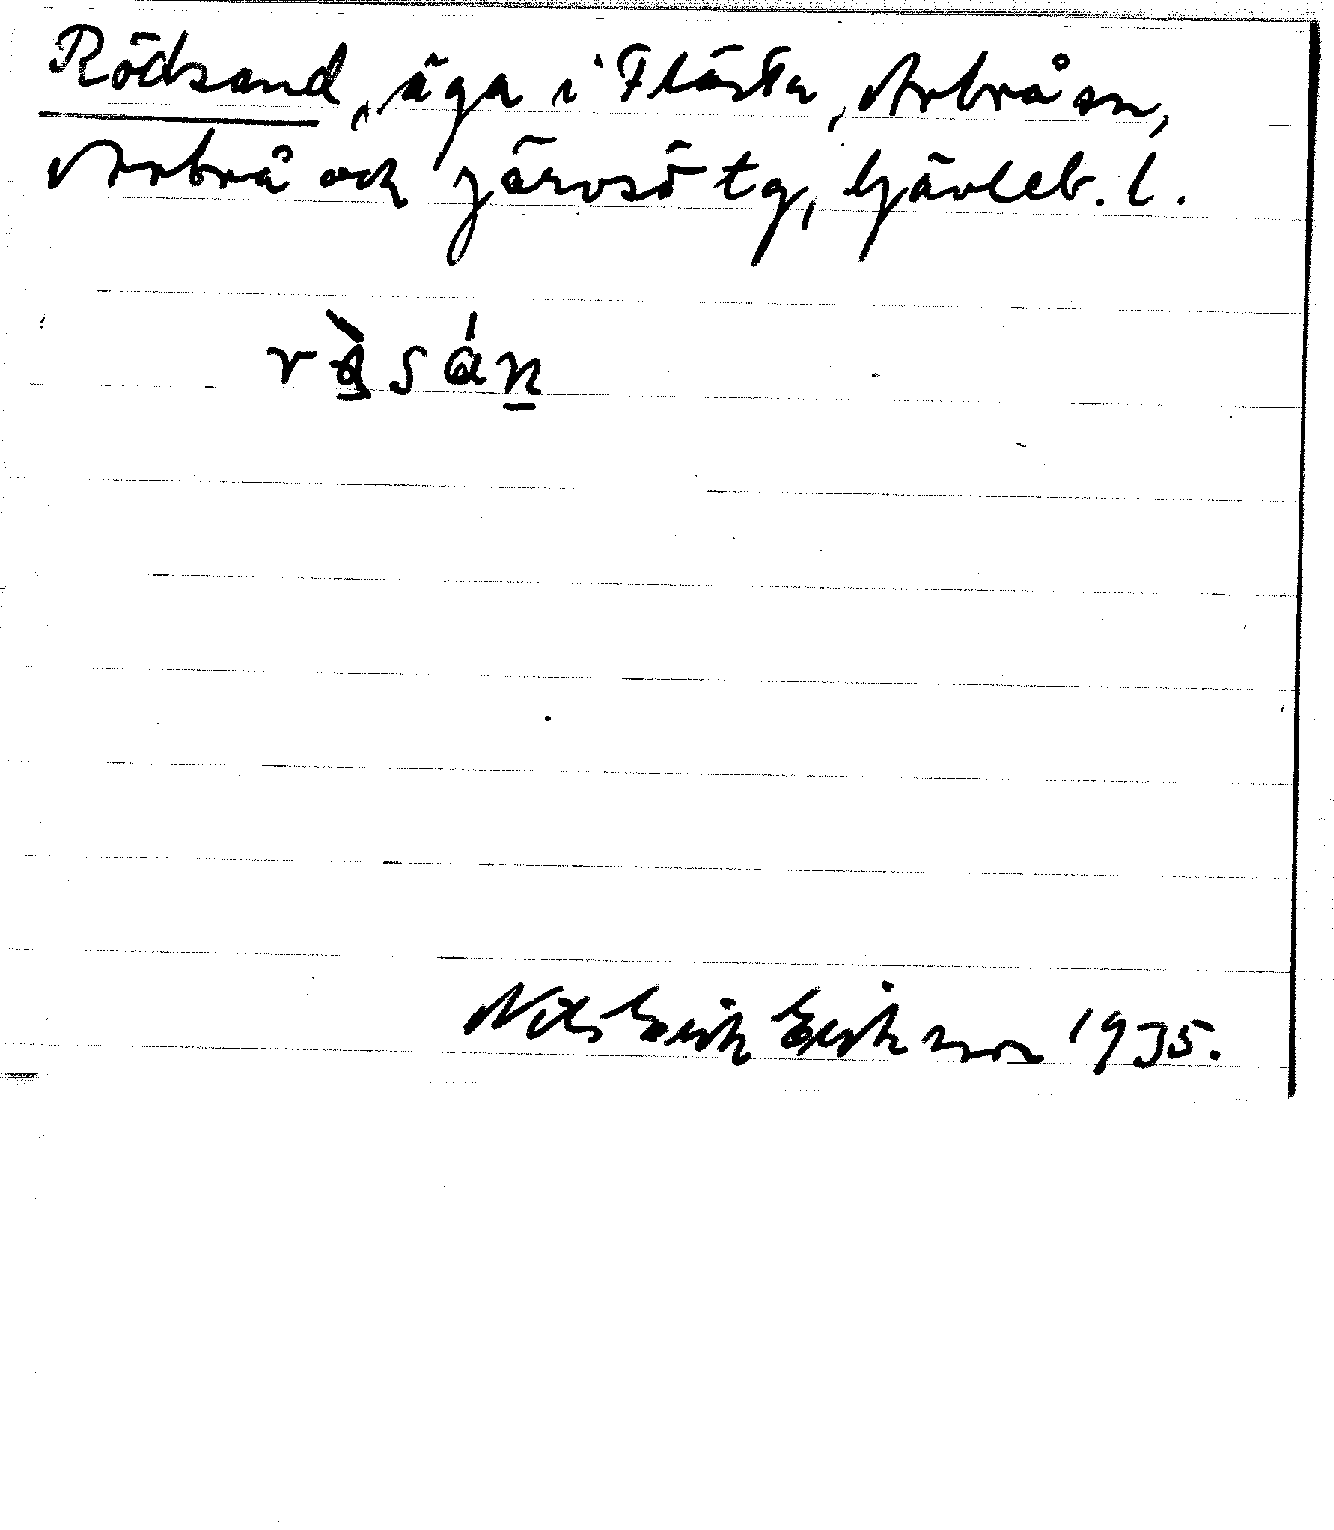 Rödsand, äga i Flästa, Arbrå sn,
Arbrå och Järvsö tg, Gävleb. l.
Nils Erik Eriksson 1935.